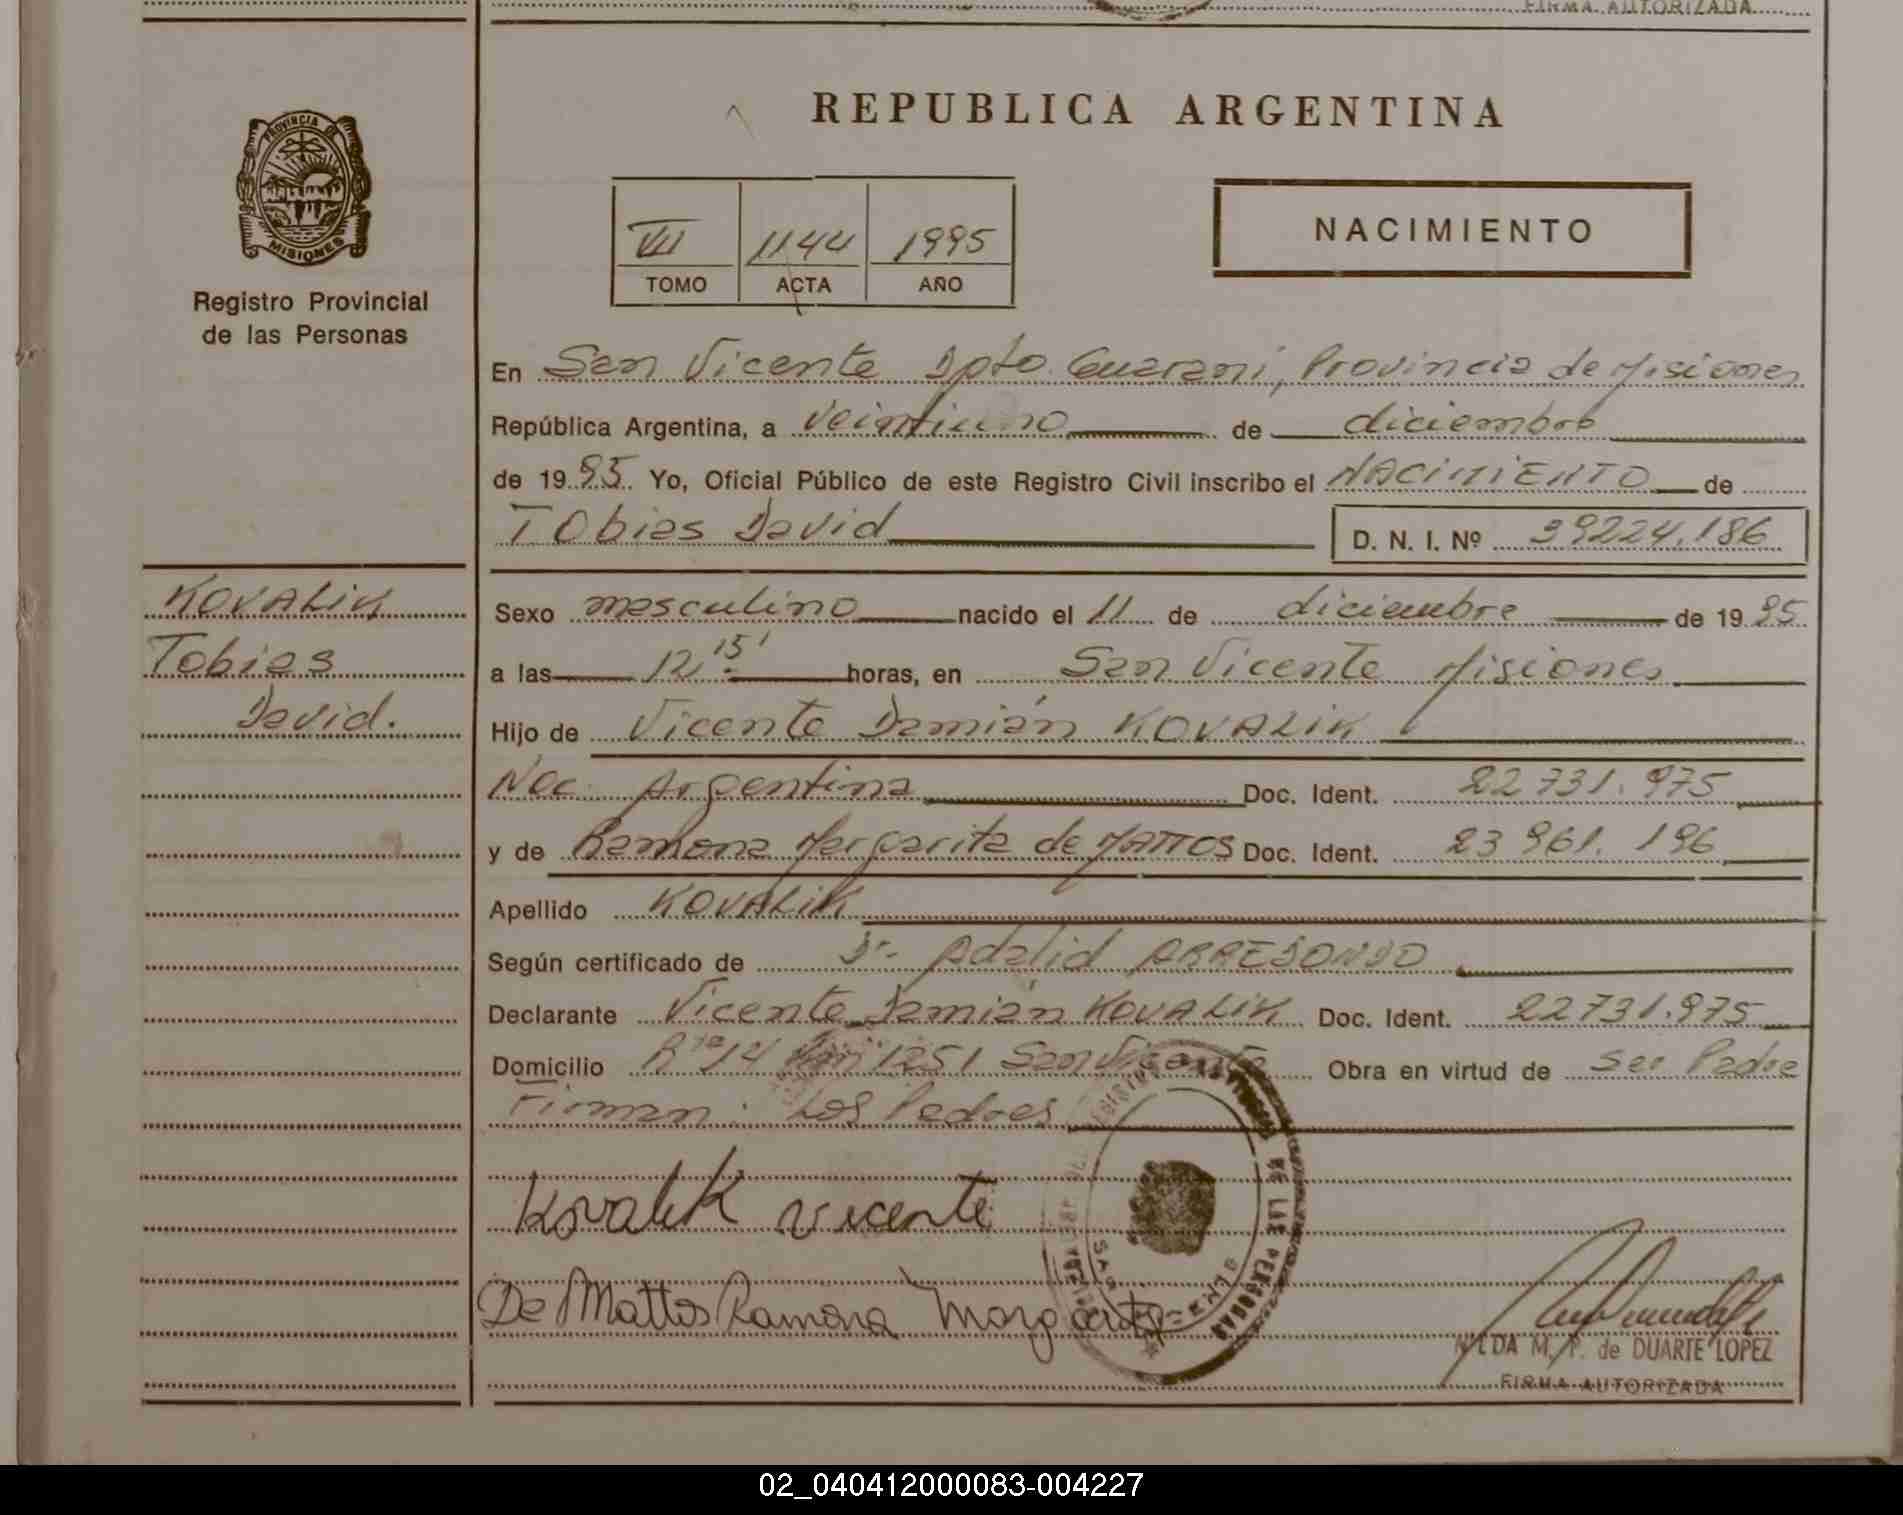 FIRMA AUTORIZADA
REPUBLICA ARGENTINA
PROVINCIA DE
MISIONES
Registro Provincial
de las Personas
VII 1144 1995
TOMO ACTA AÑO
NACIMIENTO
En San Vicente Dpto. Guaraní, Provincia de Misiones
República Argentina, a veintiuno de diciembre
de 1995 Yo, Oficial Público de este Registro Civil inscribo el NACIMIENTO de
Tobias David D. N. I. Nº 39224.186
KOVALIK
Tobias
David.
Sexo masculino nacido el 11 de diciembre de 1995
a las 12,15' horas, en San Vicente Misiones
Hijo de Vicente Damián KOVALIK
Nac. Argentina Doc. Ident. 22 731.975
y de Ramona Margarita de MATTOS Doc. Ident. 23 961. 196
Apellido KOVALIK
Según certificado de Dr. Adalid ARREDONDO
Declarante Vicente Damián KOVALIK Doc. Ident. 22731.975
Domicilio Rta 14 Km 1251 San Vicente Obra en virtud de ser Padre
Firman: Los Padres
Kovalik Vicente
De Mattos Ramona Margarita
DE LAS PERSONAS
NILDA M. P. de DUARTE LOPEZ
FIRMA AUTORIZADA
02_040412000083-004227